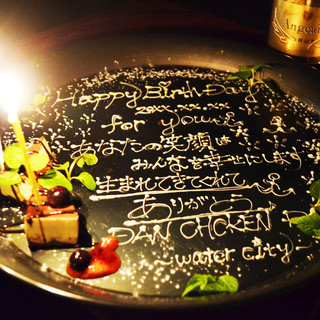 Happy BirthDay
20xx.xx.xx
for you
あなたの笑顔は
みんなを幸せにします
生まれてきてくれて
ありがとう
DAN CHICKEN
～water city～